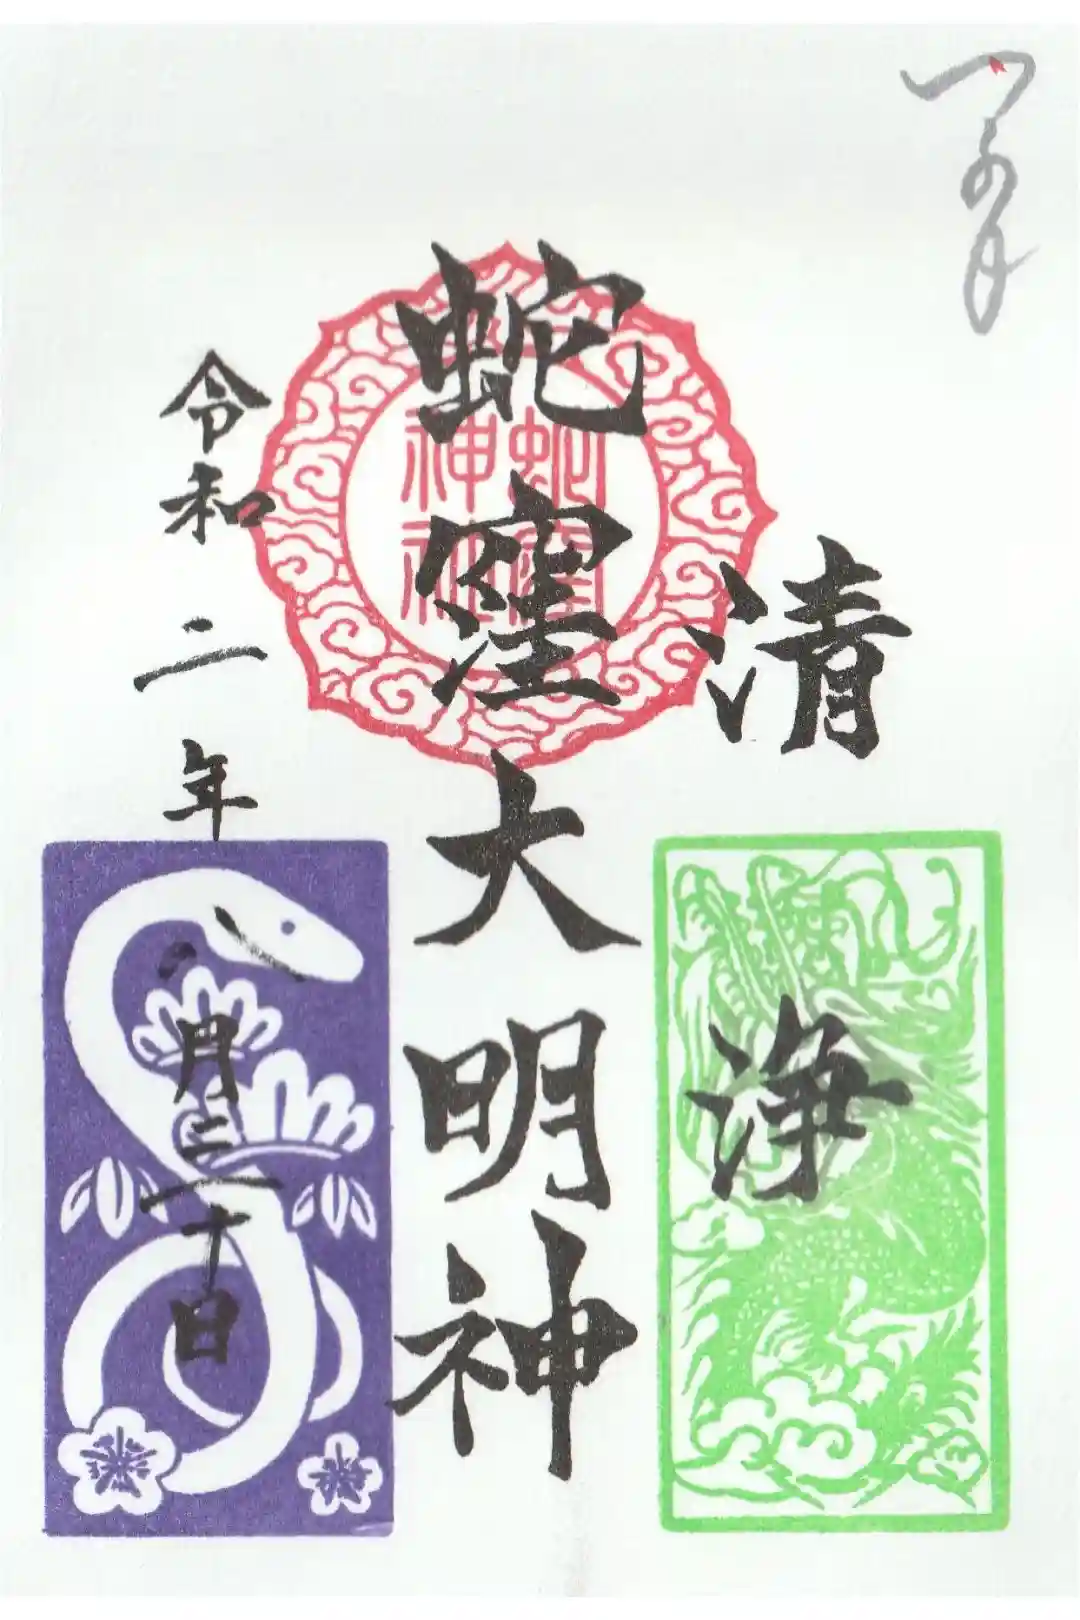 清浄
蛇窪大明神
令和二年八月二十日
蛇窪
神社